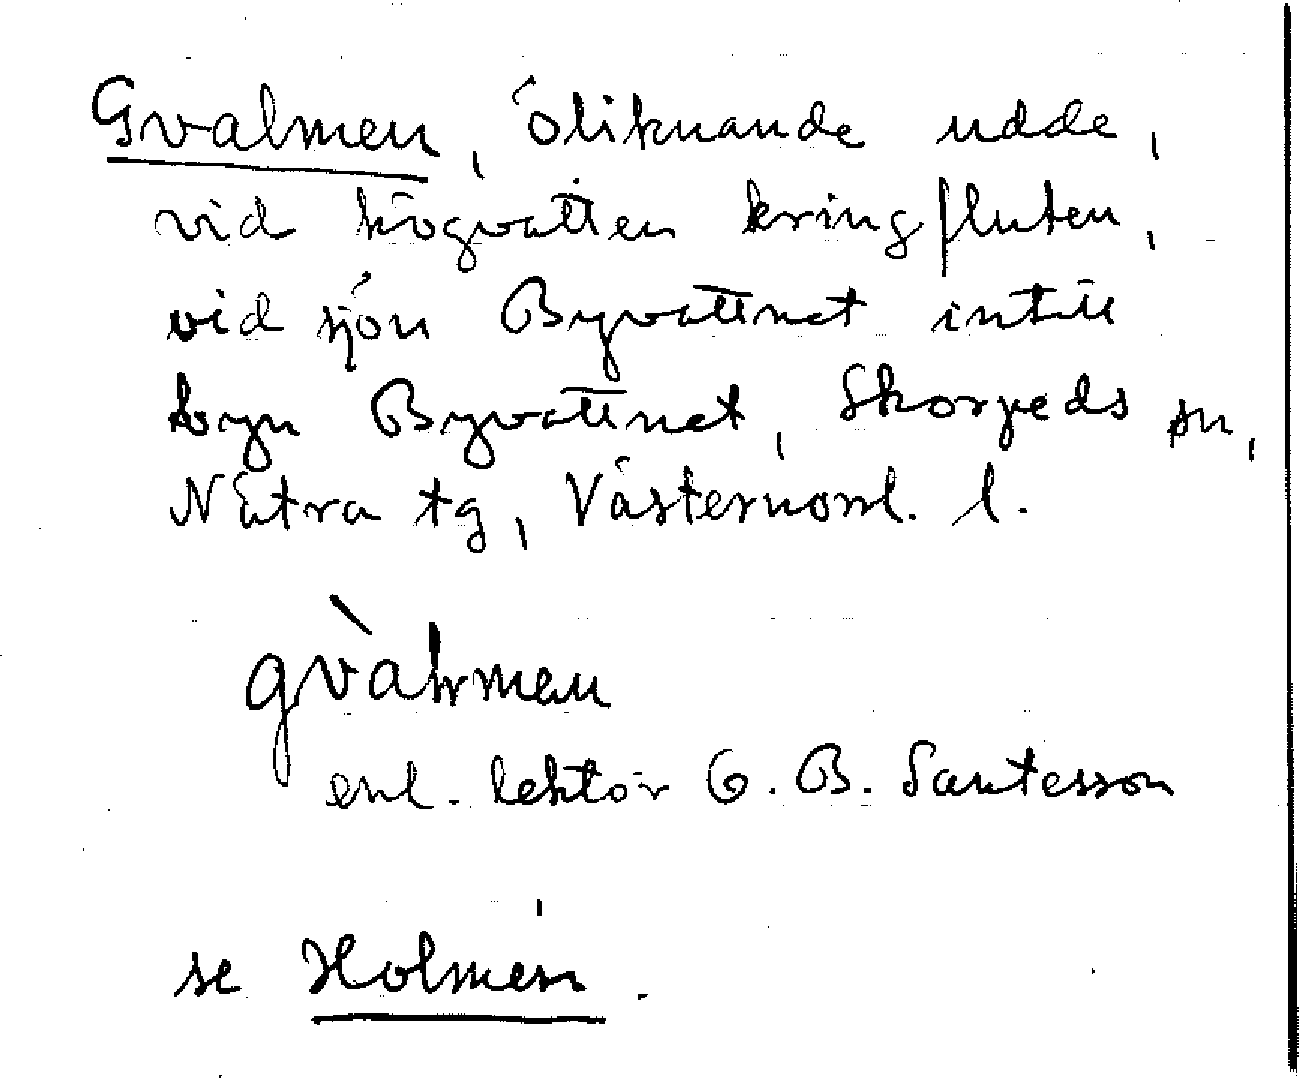 Gvalmen, öliknande udde,
vid högvatten kringfluten,
vid sjön Byvattnet intill
byn Byvattnet, Skorpeds sn,
Nätra tg, Västernorrl. l.
gvàlmen
enl. lektor G. B. Santesson
se Holmen.